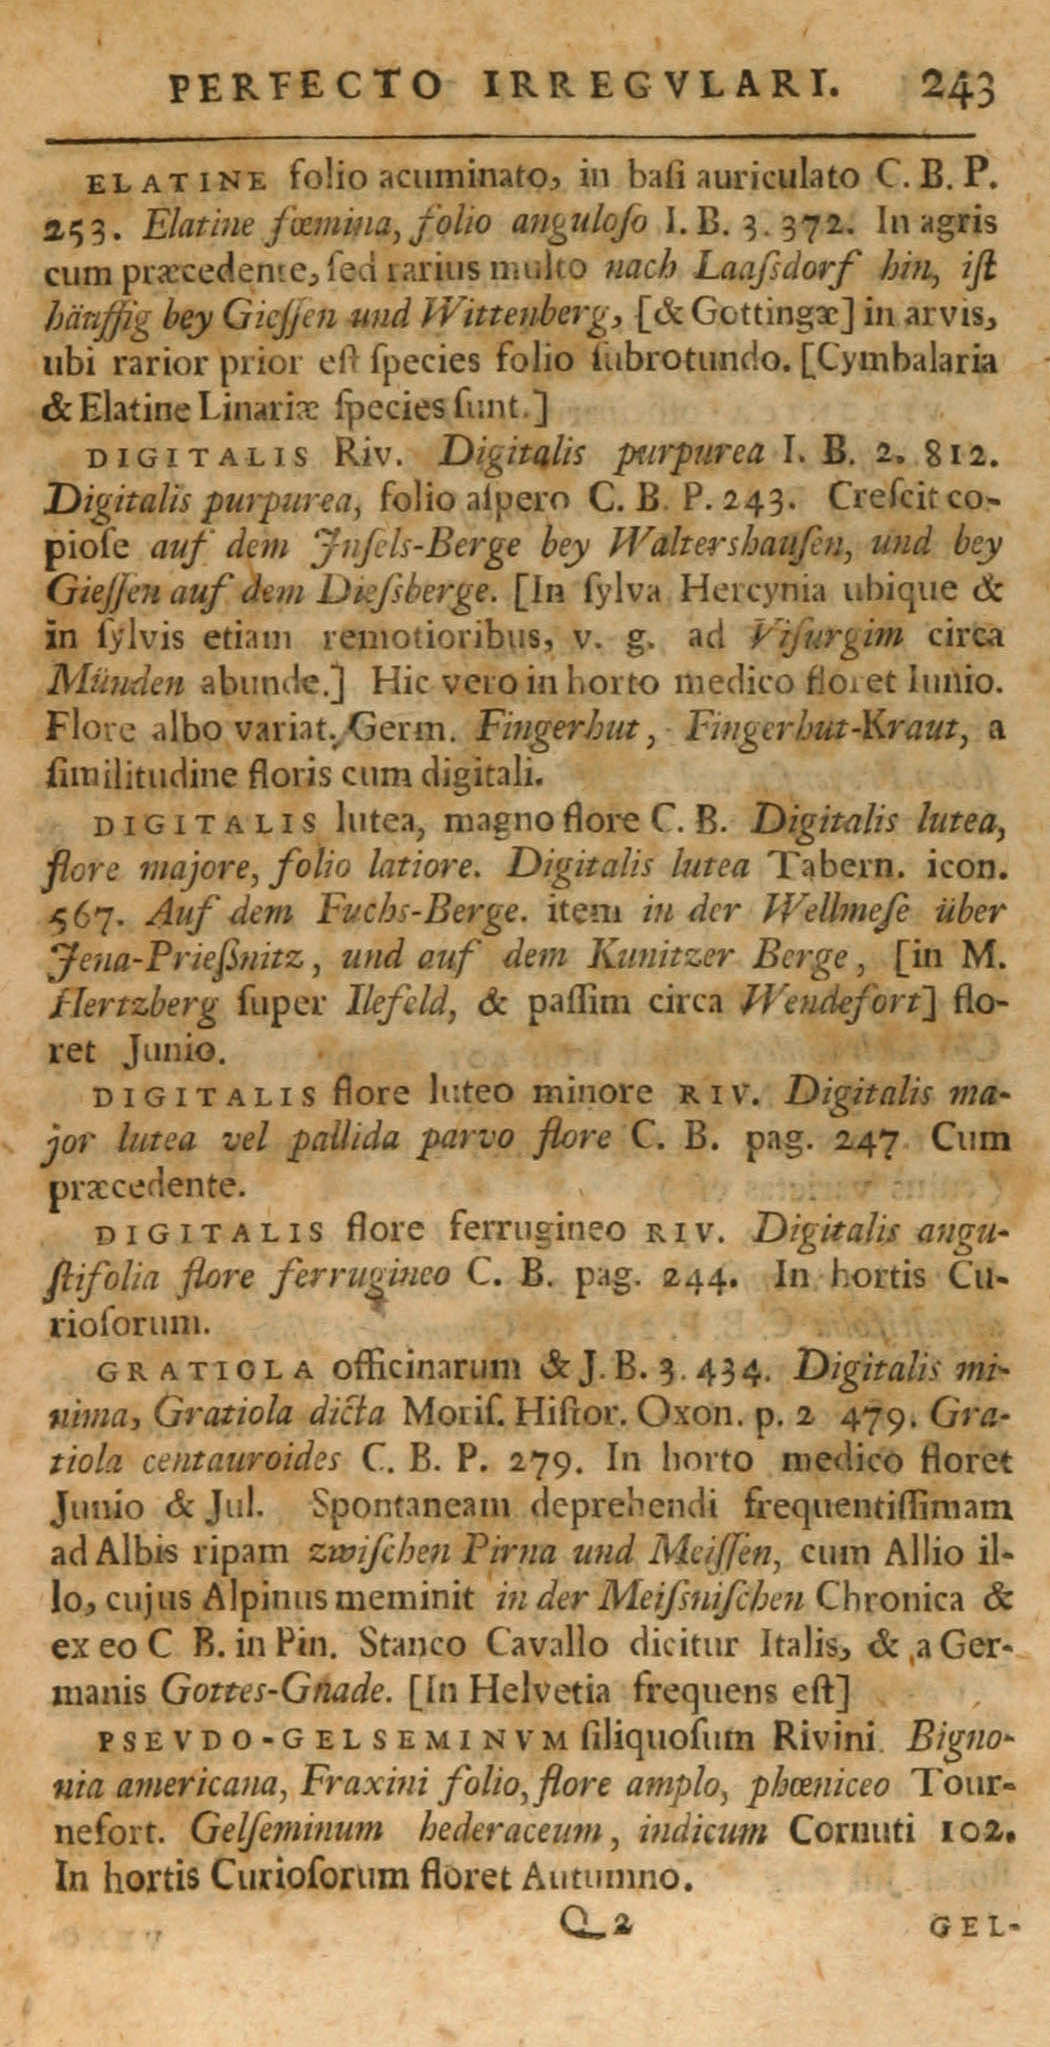 PERFECTO IRREGVLARI. 243
ELATINE folio acuminato, in baſi auriculato C. B. P.
253. Elatine fœmina, folio anguloſo I. B. 3. 372. In agris
cum præcedente, ſed rarius multo nach Laaſsdorf hin, iſt
häuffig bey Gieſſen und Wittenberg, [& Gottingæ] in arvis,
ubi rarior prior eſt ſpecies folio ſubrotundo. [Cymbalaria
& Elatine Linariæ ſpecies ſunt.]
DIGITALIS Riv. Digitalis purpurea I. B. 2. 812.
Digitalis purpurea, folio aſpero C. B. P. 243. Creſcit co-
pioſe auf dem Jnſels-Berge bey Waltershauſen, und bey
Gieſſen auf dem Dieſsberge. [In ſylva Hercynia ubique &
in ſylvis etiam remotioribus, v. g. ad Viſurgim circa
Münden abunde.] Hic vero in horto medico floret Iunio.
Flore albo variat. Germ. Fingerhut, Fingerhut-Kraut, a
ſimilitudine floris cum digitali.
DIGITALIS lutea, magno flore C. B. Digitalis lutea,
flore majore, folio latiore. Digitalis lutea Tabern. icon.
567. Auf dem Fuchs-Berge. item in der Wellmeſe über
Jena-Prieſsnitz, und auf dem Kunitzer Berge, [in M.
Hertzberg ſuper Ilefeld, & paſſim circa Wendefort] flo-
ret Junio.
DIGITALIS flore luteo minore RIV. Digitalis ma-
jor lutea vel pallida parvo flore C. B. pag. 247 Cum
præcedente.
DIGITALIS flore ferrugineo RIV. Digitalis angu-
ſtifolia flore ferrugineo C. B. pag. 244. In hortis Cu-
rioſorum.
GRATIOLA officinarum & J. B. 3. 434. Digitalis mi-
nima, Gratiola dicta Moriſ. Hiſtor. Oxon. p. 2 479. Gra-
tiola centauroides C. B. P. 279. In horto medico floret
Junio & Jul. Spontaneam deprehendi frequentiſſimam
ad Albis ripam zwiſchen Pirna und Meiſſen, cum Allio il-
lo, cujus Alpinus meminit in der Meiſsniſchen Chronica &
ex eo C B. in Pin. Stanco Cavallo dicitur Italis, & a Ger-
manis Gottes-Gnade. [In Helvetia frequens eſt]
PSEVDO-GELSEMINVM ſiliquoſum Rivini. Bigno-
nia americana, Fraxini folio, flore amplo, phœniceo Tour-
nefort. Gelſeminum hederaceum, indicum Cornuti 102.
In hortis Curioſorum floret Autumno.
Q 2 GEL-